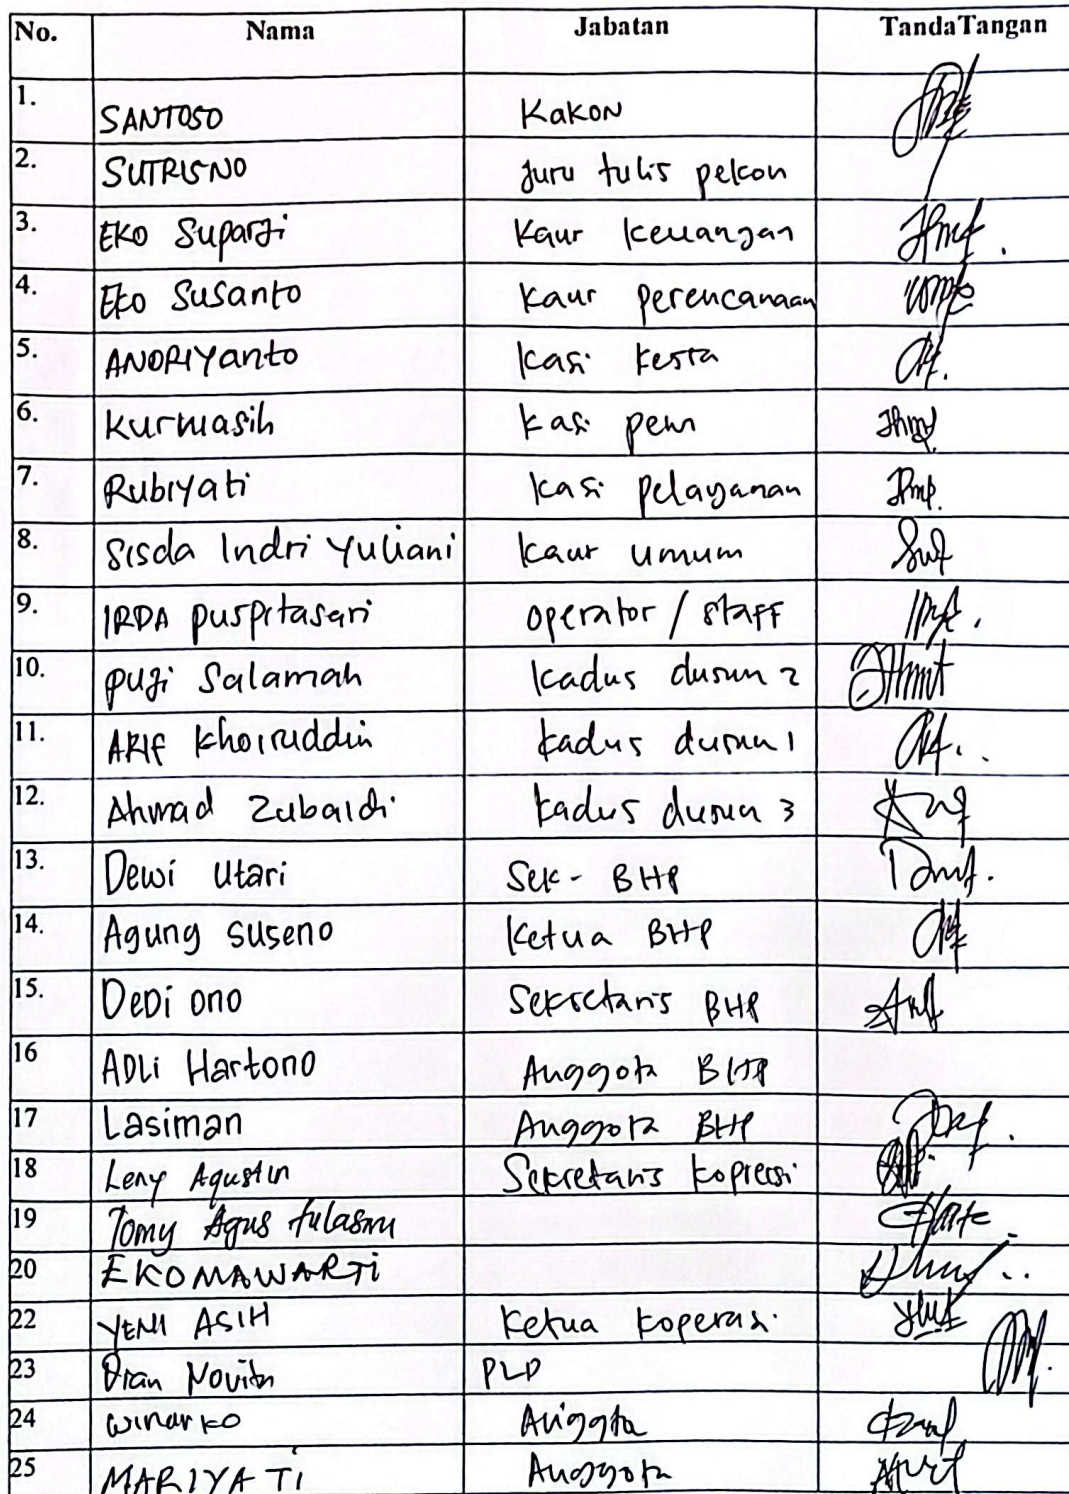 No. Nama Jabatan TandaTangan
1. SANTOSO Kakon
2. SUTRISNO Juru tulis pekon
3. EKO Suparji Kaur keuangan
4. Eko Susanto Kaur perencanaan
5. ANDRIYanto Kasi kesra
6. Kurmasih Kasi pem
7. Rubiyati Kasi pelayanan
8. Sisda Indri Yuliani Kaur umum
9. IRDA puspitasari operator / staff
10. puji Salamah Kadus dusun 2
11. ARIF Khoiruddin Kadus dusun 1
12. Ahmad Zubaidi Kadus dusun 3
13. Dewi Utari Sek - BHP
14. Agung suseno Ketua BHP
15. DeDi ono Sekretaris BHP
16 ADLi Hartono Anggota BHP
17 Lasiman Anggota BHP
18 Leny Agustin Sekretaris
19 Tomy Agus
20 EKO MAWARTi
22 YENI ASIH Ketua koperasi
23 Novita PLD
24 winarko Anggota
25 MARIYATI Anggota